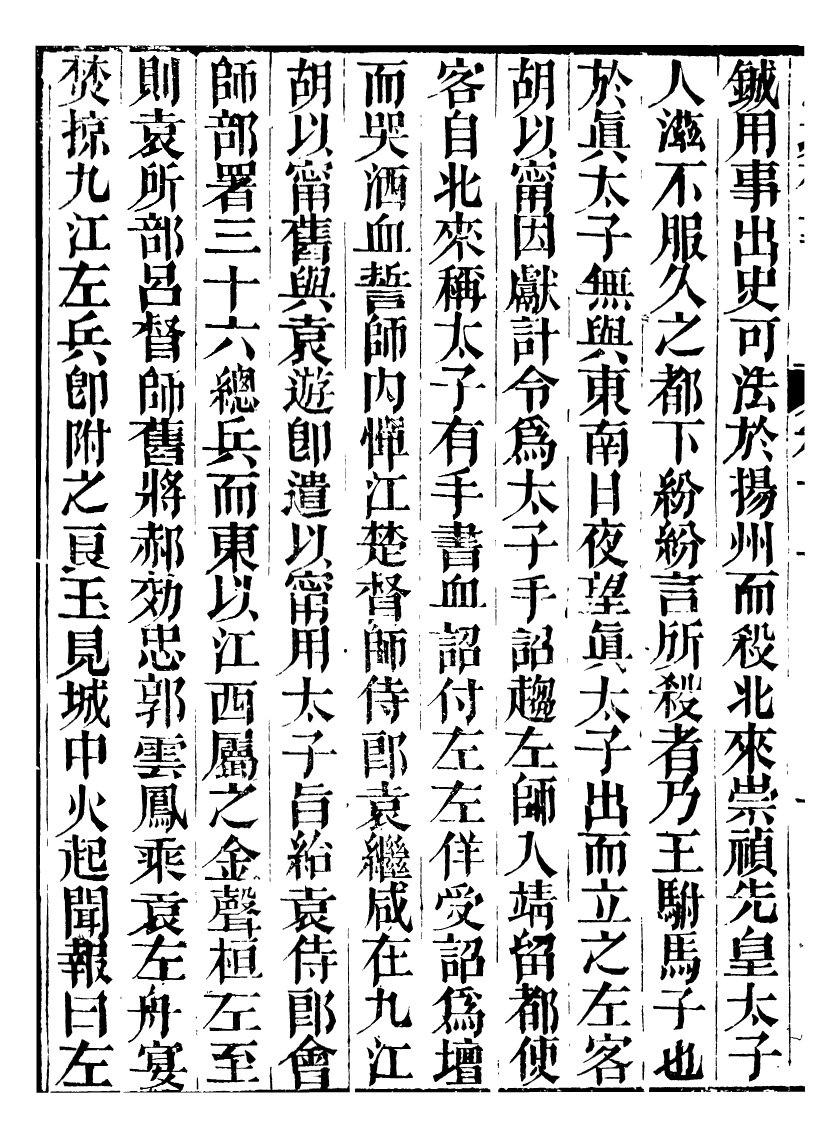 鋮用事出史可法於揚州而殺北來崇禎先皇太子
人滋不服久之都下紛紛言所殺者乃王駙馬子也
於眞太子無與東南日夜望眞太子出而立之左客
胡以甯因獻計令爲太子手詔趨左師入靖留都使
客自北來稱太子有手書血詔付左左佯受詔爲壇
而哭洒血誓師内憚江楚督師侍郎袁繼咸在九江
胡以甯舊與袁遊卽遣以甯用太子旨紿袁侍郎會
師部署三十六總兵而東以江西屬之金聲桓左至
則袁所部呂督師舊將郝効忠郭雲鳳乘袁左舟宴
焚掠九江左兵卽附之良玉見城中火起聞報曰左